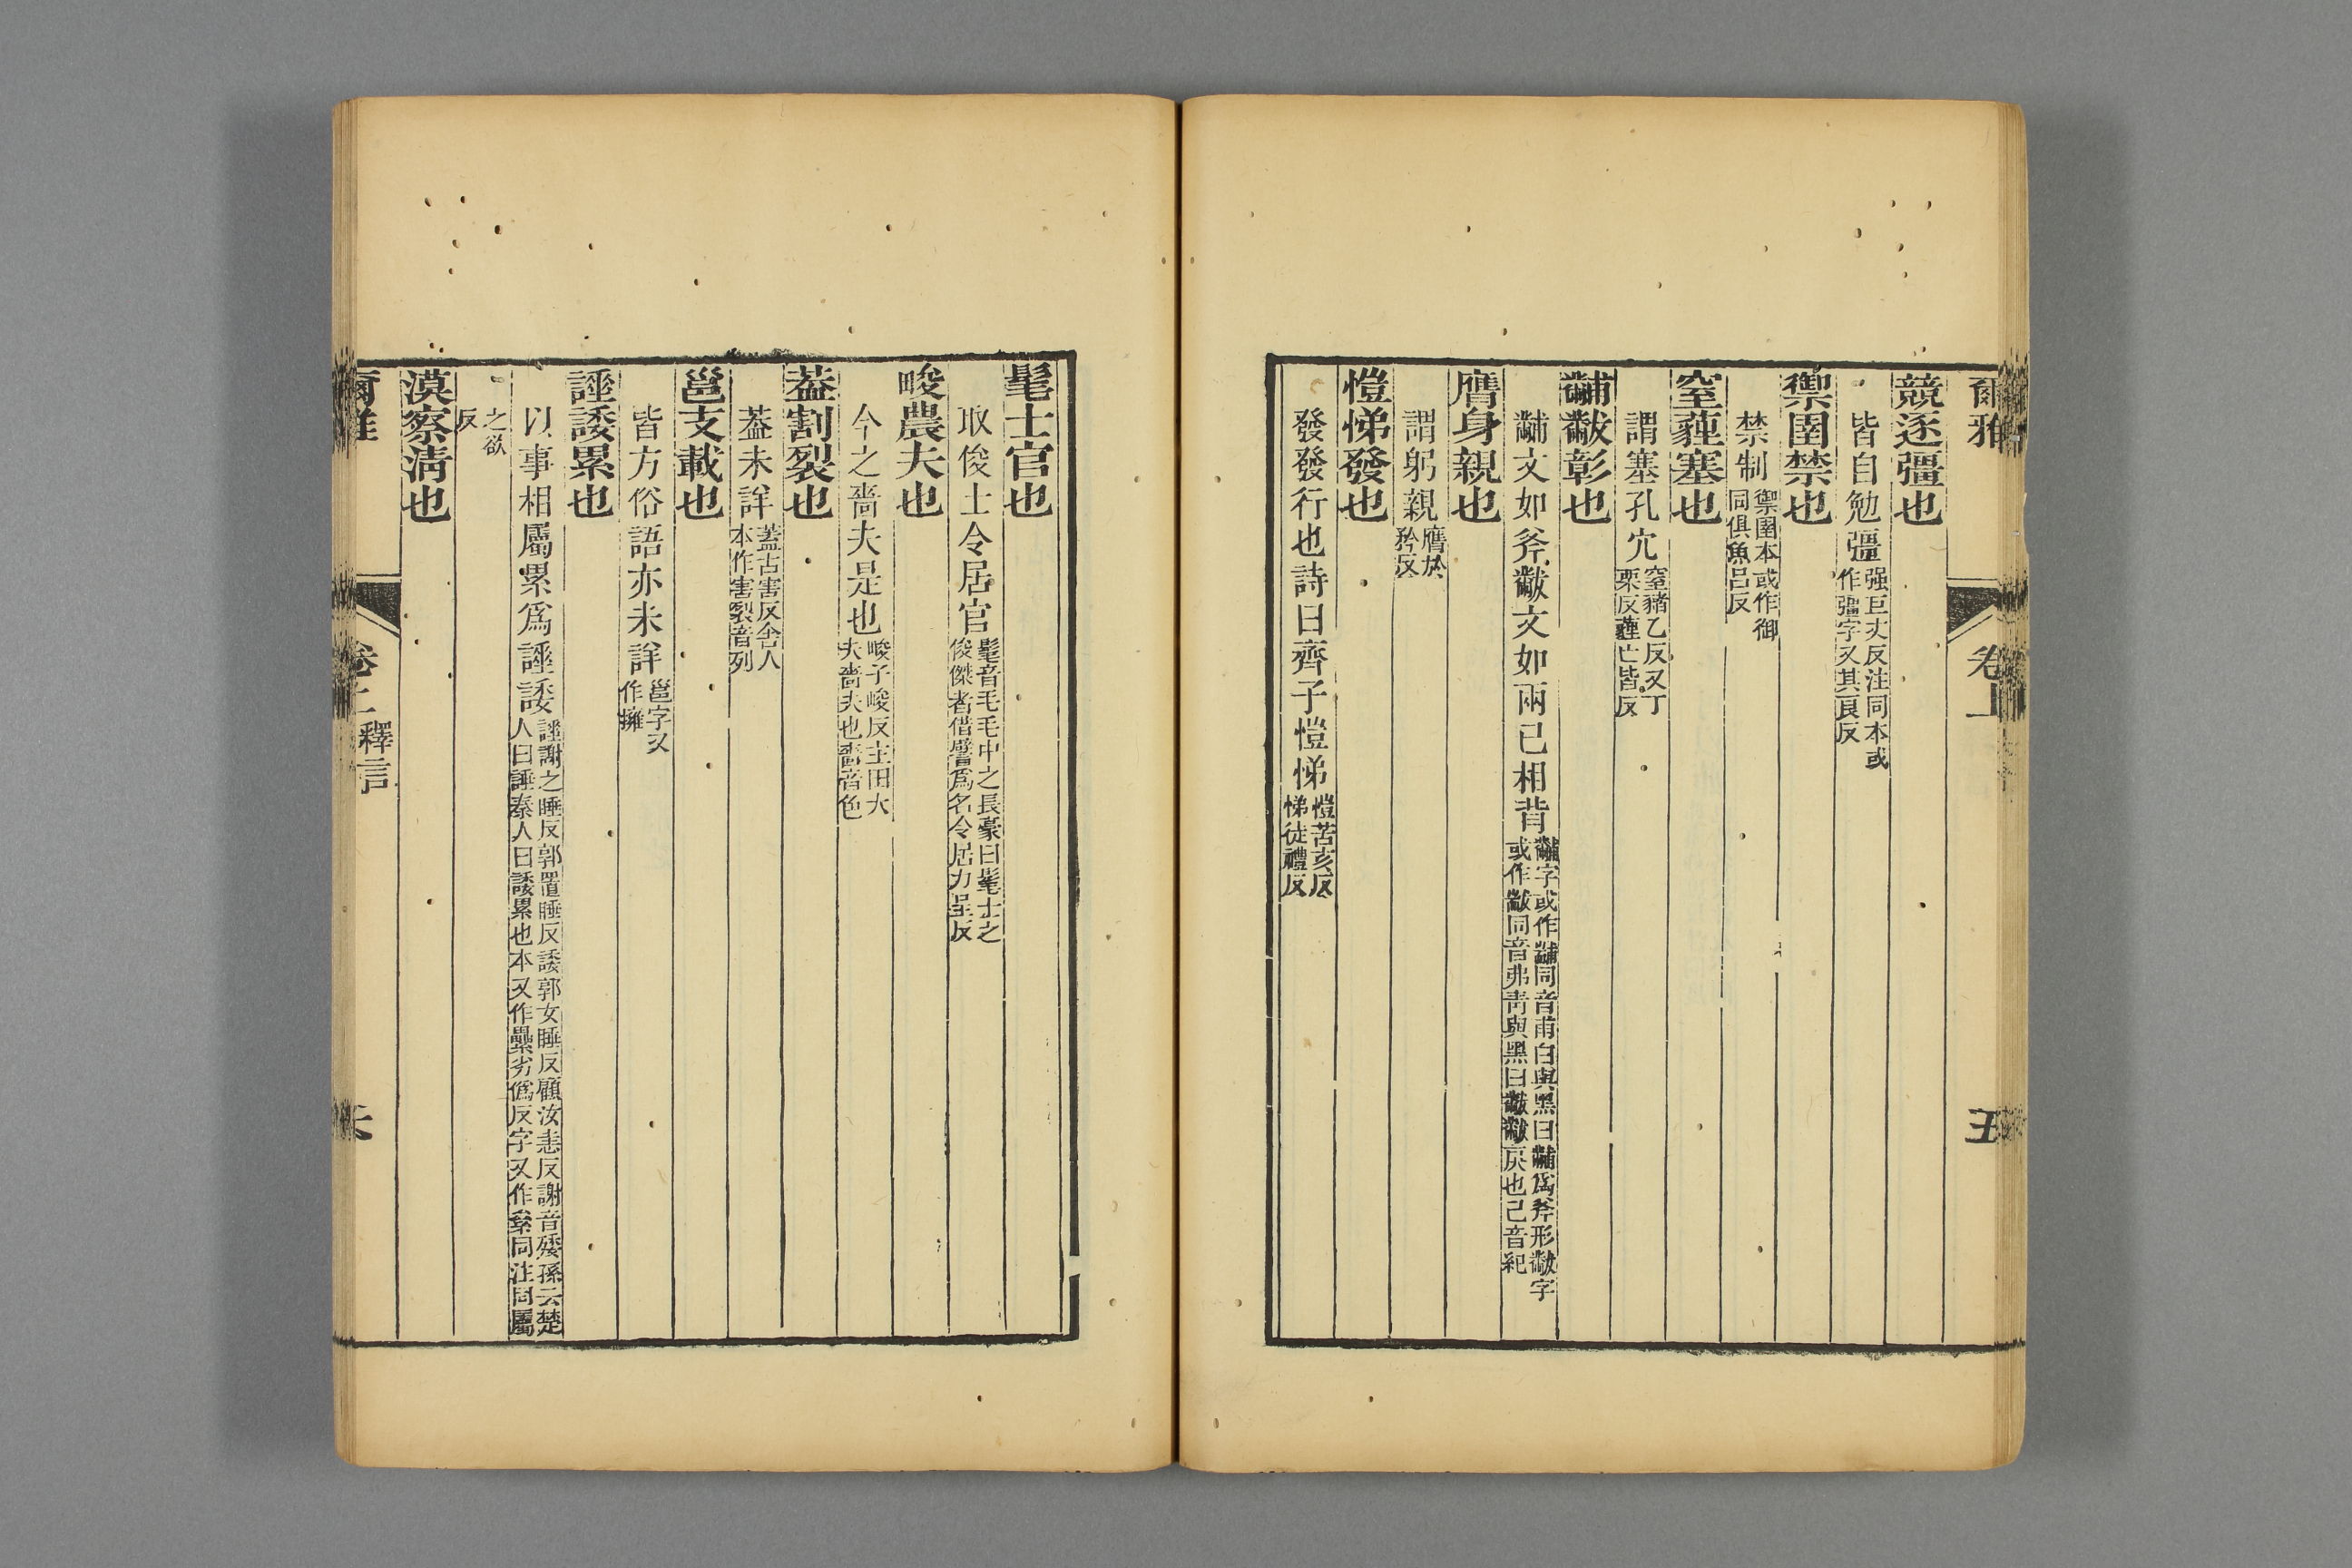 爾雅 卷上 五
競逐彊也
皆自勉彊强巨丈反注同本或作彊字又其良反
禦圉禁也
禁制禦圉本或作御同俱魚呂反
窒薶塞也
謂塞孔穴窒豬乙反又丁栗反薶亡皆反
黼黻彰也
黼文如斧黻文如兩己相背黼字或作黼同音甫白與黑曰黼爲斧形黻字或作黻同音弗靑與黑曰黻黻戾也己音紀
膺身親也
謂躬親膺於矜反
愷悌發也
發發行也詩曰齊子愷悌愷苦亥反悌徒禮反
髦士官也
取俊士令居官髦音毛毛中之長豪曰髦士之俊傑者借譬爲名令居力呈反
畯農夫也
今之嗇夫是也畯子峻反主田大夫嗇夫也嗇音色
葢割裂也
葢未詳葢古害反舍人本作害裂音列
邕支載也
皆方俗語亦未詳邕字又作擁
諈諉累也
以事相屬累爲諈諉諈謝之睡反郭置睡反諉郭女睡反顧汝恚反謝音矮孫云楚人曰諈秦人曰諉累也本又作纍劣僞反字又作絫同注同屬
之欲反
漠察淸也
爾雅 卷上 釋言 六